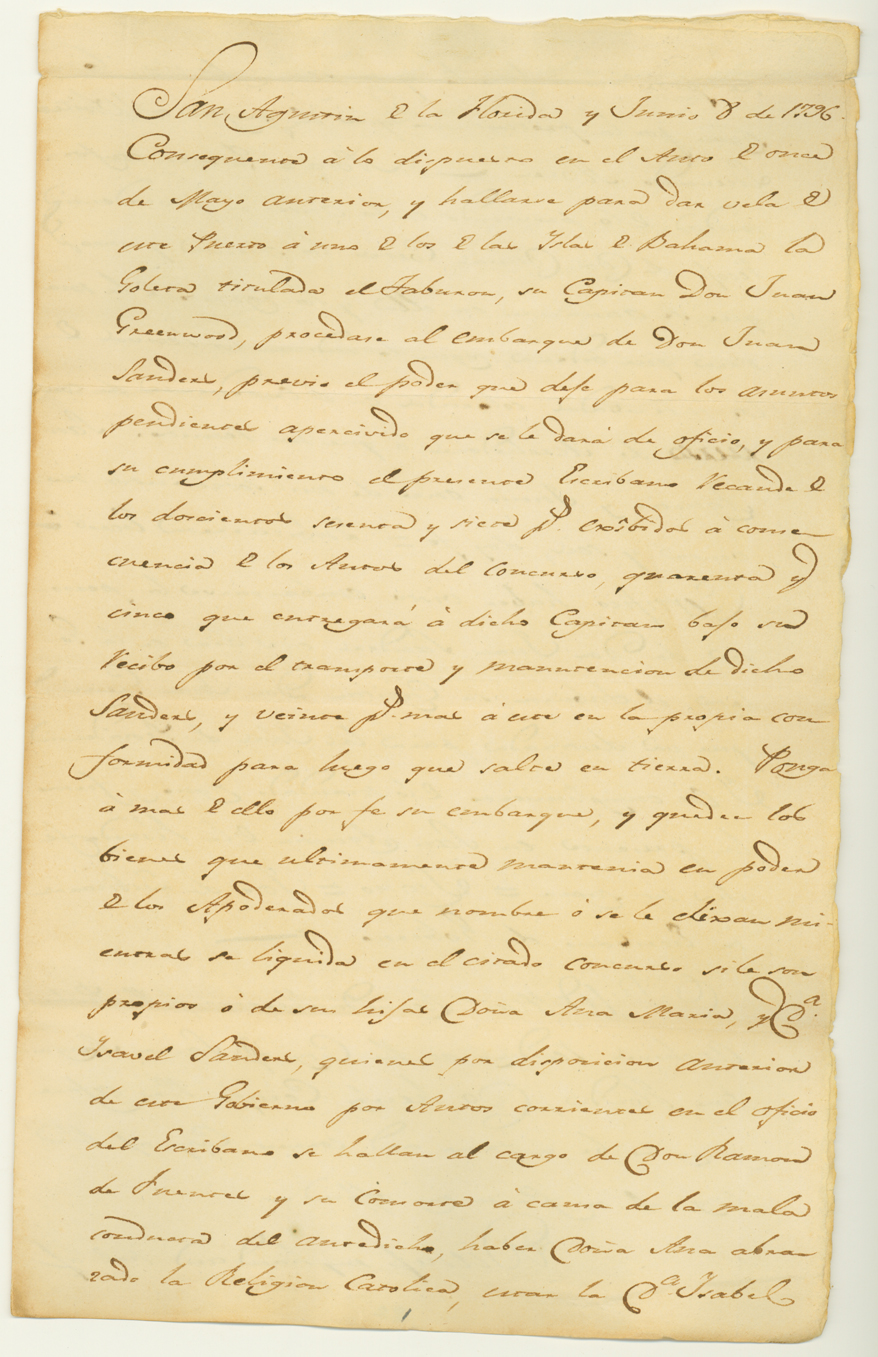 San Agustin de la Florida y Junio 8 de 1796.
Consequente à lo dispuesto en el Auto de once
de Mayo anterior, y hallarse para dar vela de
este Puerto à uno de los de las Islas de Bahama la
Goleta titulada el Taburon, su Capitan Don Juan
Greenwood, procedase al embarque de Don Juan
Sanders, previo el poder que deje para los asuntos
pendientes apercivido que se le dará de oficio, y para
su cumplimiento el presente Escribano recaude de
los doscientos sesenta y siete p.s exîbidos à conse-
cuencia de los Autos del Concurso, quarenta y
cinco que entregará à dicho Capitan bajo su
recibo por el transporte y manutencion de dicho
Sanders, y veinte p.s mas à este en la propia con
formidad para luego que salte en tierra. Ponga
à mas de ello por fe su embarque, y queden los
bienes que ultimamente mantenia en poder
de los Apoderados que nombre ó se le elixan mi-
entras se liquida en el citado concurso si le son
propios ó de sus hijas Doña Ana Maria, y D.a
Ysavel Sanders, quienes por disposicion anterior
de este Gobierno por Autos corrientes en el oficio
del Escribano se hallan al cargo de Don Ramon
de Fuentes y su Consorte à causa de la mala
conducta del antedicho, haber Doña Ana abra
zado la Religion Catolica, estar la D.a Isabel